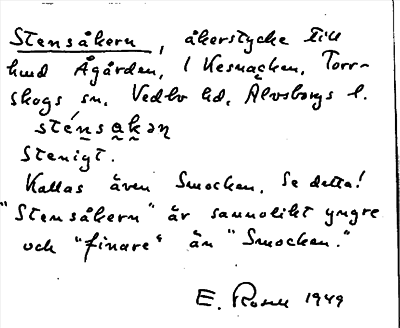 Stensåkern, åkerstycke till
hmd Ågården, i Kesnacken, Torr-
skogs sn, Vedbo hd, Älvsborgs l.
sténsakən
Stenigt.
Kallas även Smocken. Se detta!
"Stensåkern" är sannolikt yngre
och "finare" än "Smocken."
E. Rosell 1949